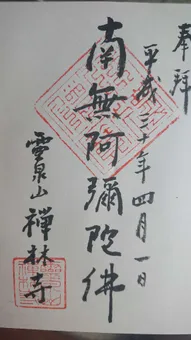 奉拝
平成三十年四月一日
南無阿彌陀佛
霊泉山禅林寺